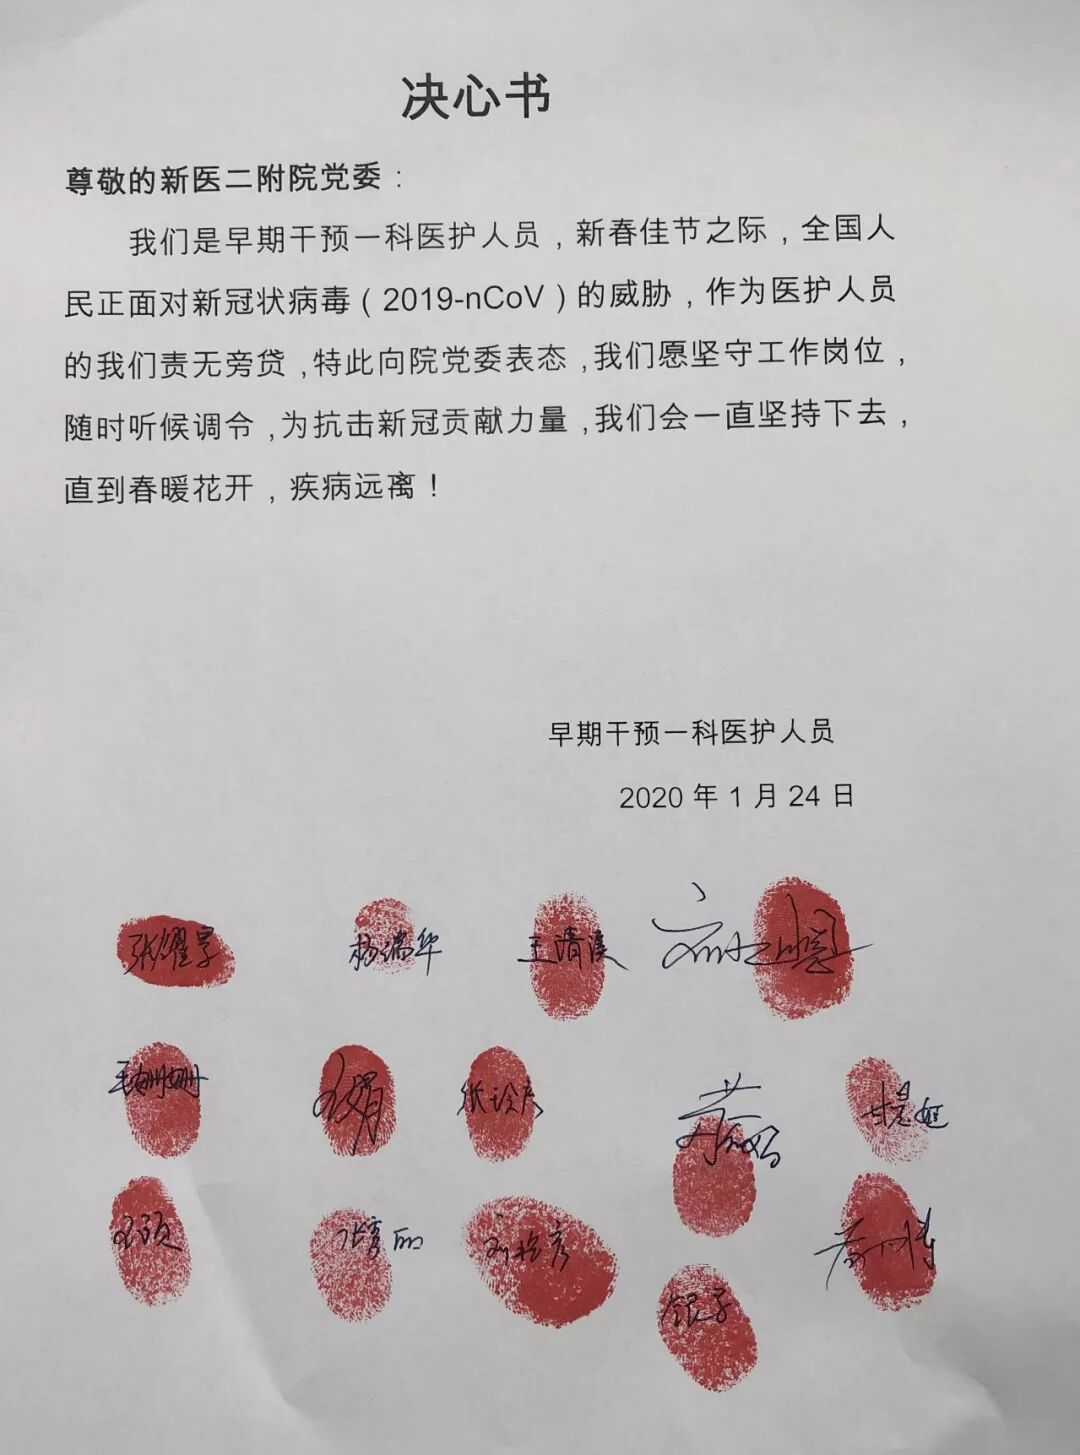 决心书
尊敬的新医二附院党委：
我们是早期干预一科医护人员，新春佳节之际，全国人
民正面对新冠状病毒（2019-nCoV）的威胁，作为医护人员
的我们责无旁贷，特此向院党委表态，我们愿坚守工作岗位，
随时听候调令，为抗击新冠贡献力量，我们会一直坚持下去，
直到春暖花开，疾病远离！
早期干预一科医护人员
2020 年 1 月 24 日
杨瑞华 王清溪
王姗姗
王颖